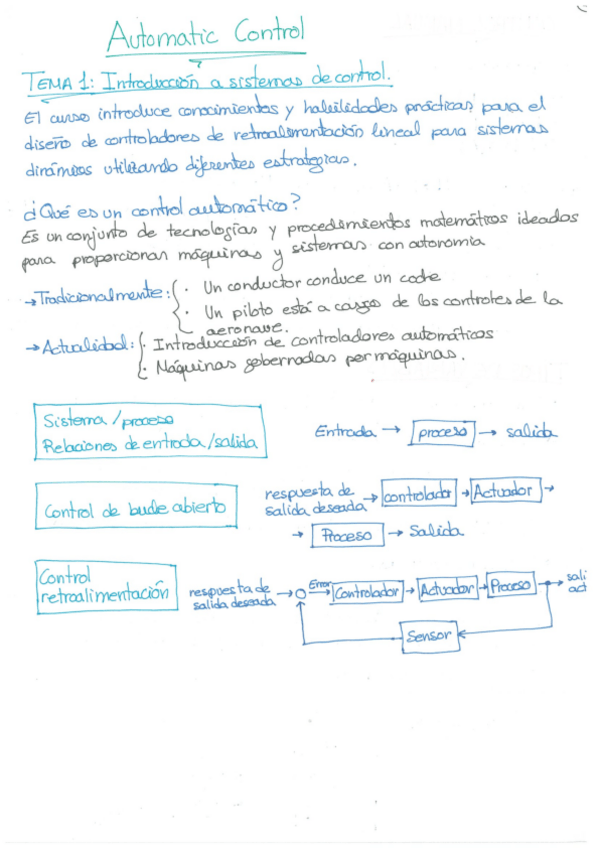 Automatic Control
TEMA 1: Introducción a sistemas de control.
El curso introduce conocimientos y habilidades prácticas para el
diseño de controladores de retroalimentación lineal para sistemas
dinámicos utilizando diferentes estrategias.
¿Qué es un control automático?
Es un conjunto de tecnologías y procedimientos matemáticos ideados
para proporcionar máquinas y sistemas con autonomía
→Tradicionalmente: · Un conductor conduce un coche
· Un piloto está a cargo de los controles de la
aeronave.
→Actualidad: · Introducción de controladores automáticos
· Máquinas gobernadas por máquinas.
Sistema/proceso
Relaciones de entrada/salida
Entrada → proceso → salida
Control de bucle abierto
respuesta de
salida deseada → controlador → Actuador →
→ Proceso → Salida
Control
retroalimentación
respuesta de
salida deseada → Error → Controlador → Actuador → Proceso → sali
act
Sensor